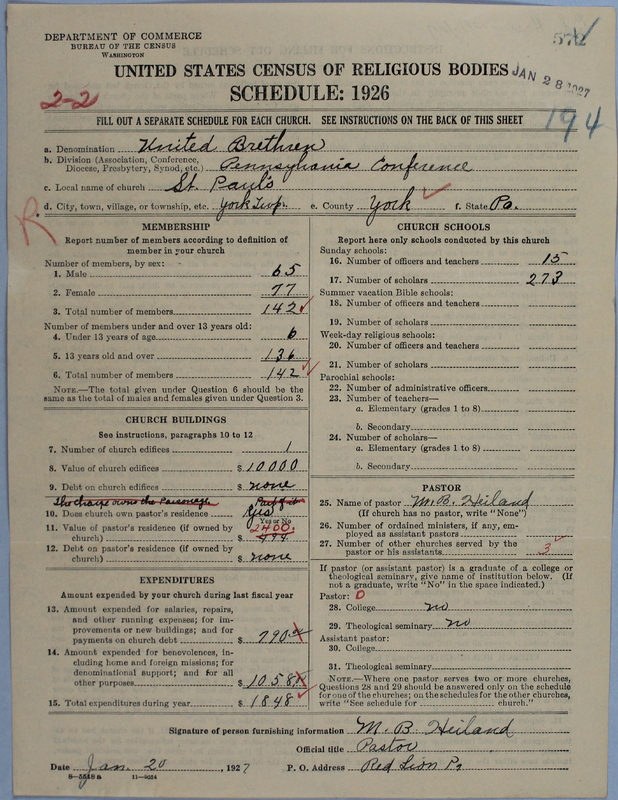 DEPARTMENT OF COMMERCE
BUREAU OF THE CENSUS
WASHINGTON
UNITED STATES CENSUS OF RELIGIOUS BODIES
JAN 28 1927
2-2
SCHEDULE: 1926
FILL OUT A SEPARATE SCHEDULE FOR EACH CHURCH. SEE INSTRUCTIONS ON THE BACK OF THIS SHEET
194
a. Denomination United Brethren
b. Division (Association, Conference, Diocese, Presbytery, Synod, etc.) Pennsylvania Conference
c. Local name of church St. Paul's
d. City, town, village, or township, etc. York Twp. e. County York f. State Pa.
R.
MEMBERSHIP
Report number of members according to definition of
member in your church
Number of members, by sex:
1. Male 65
2. Female 77
3. Total number of members 142
Number of members under and over 13 years old:
4. Under 13 years of age 6
5. 13 years old and over 136
6. Total number of members 142
NOTE.—The total given under Question 6 should be
same as the total of males and females given under Question 3.
CHURCH BUILDINGS
See instructions, paragraphs 10 to 12
7. Number of church edifices 1
8. Value of church edifices $ 10000
9. Debt on church edifices $ none
The charge owns the Parsonage Part of it
10. Does church own pastor's residence Yes
Yes or No
11. Value of pastor's residence (if owned by
church) $ 2400.
12. Debt on pastor's residence (if owned by
church) $ none
EXPENDITURES
Amount expended by your church during last fiscal year
13. Amount expended for salaries, repairs,
and other running expenses; for im-
provements or new buildings; and for
payments on church debt $ 790
14. Amount expended for benevolences, in-
cluding home and foreign missions; for
denominational support; and for all
other purposes $ 1058
15. Total expenditures during year $ 1848
CHURCH SCHOOLS
Report here only schools conducted by this church
Sunday schools:
16. Number of officers and teachers 15
17. Number of scholars 273
Summer vacation Bible schools:
18. Number of officers and teachers
19. Number of scholars
Week-day religious schools:
20. Number of officers and teachers
21. Number of scholars
Parochial schools:
22. Number of administrative officers
23. Number of teachers—
a. Elementary (grades 1 to 8)
b. Secondary
24. Number of scholars—
a. Elementary (grades 1 to 8)
b. Secondary
PASTOR
25. Name of pastor M. B. Heiland
(If church has no pastor, write "None")
26. Number of ordained ministers, if any, em-
ployed as assistant pastors
27. Number of other churches served by the
pastor or his assistants 3
If pastor (or assistant pastor) is a graduate of a college or
theological seminary, give name of institution below. (If
not a graduate, write "No" in the space indicated.)
Pastor: 0
28. College no
29. Theological seminary no
Assistant pastor:
30. College
31. Theological seminary
NOTE.—Where one pastor serves two or more churches,
Questions 28 and 29 should be answered only on the schedule
for one of the churches; on the schedules for the other churches,
write "See schedule for church."
Signature of person furnishing information M. B. Heiland
Official title Pastor
Date Jan. 20, 1927 P. O. Address Red Lion Pa
8-5518 a 11-9034